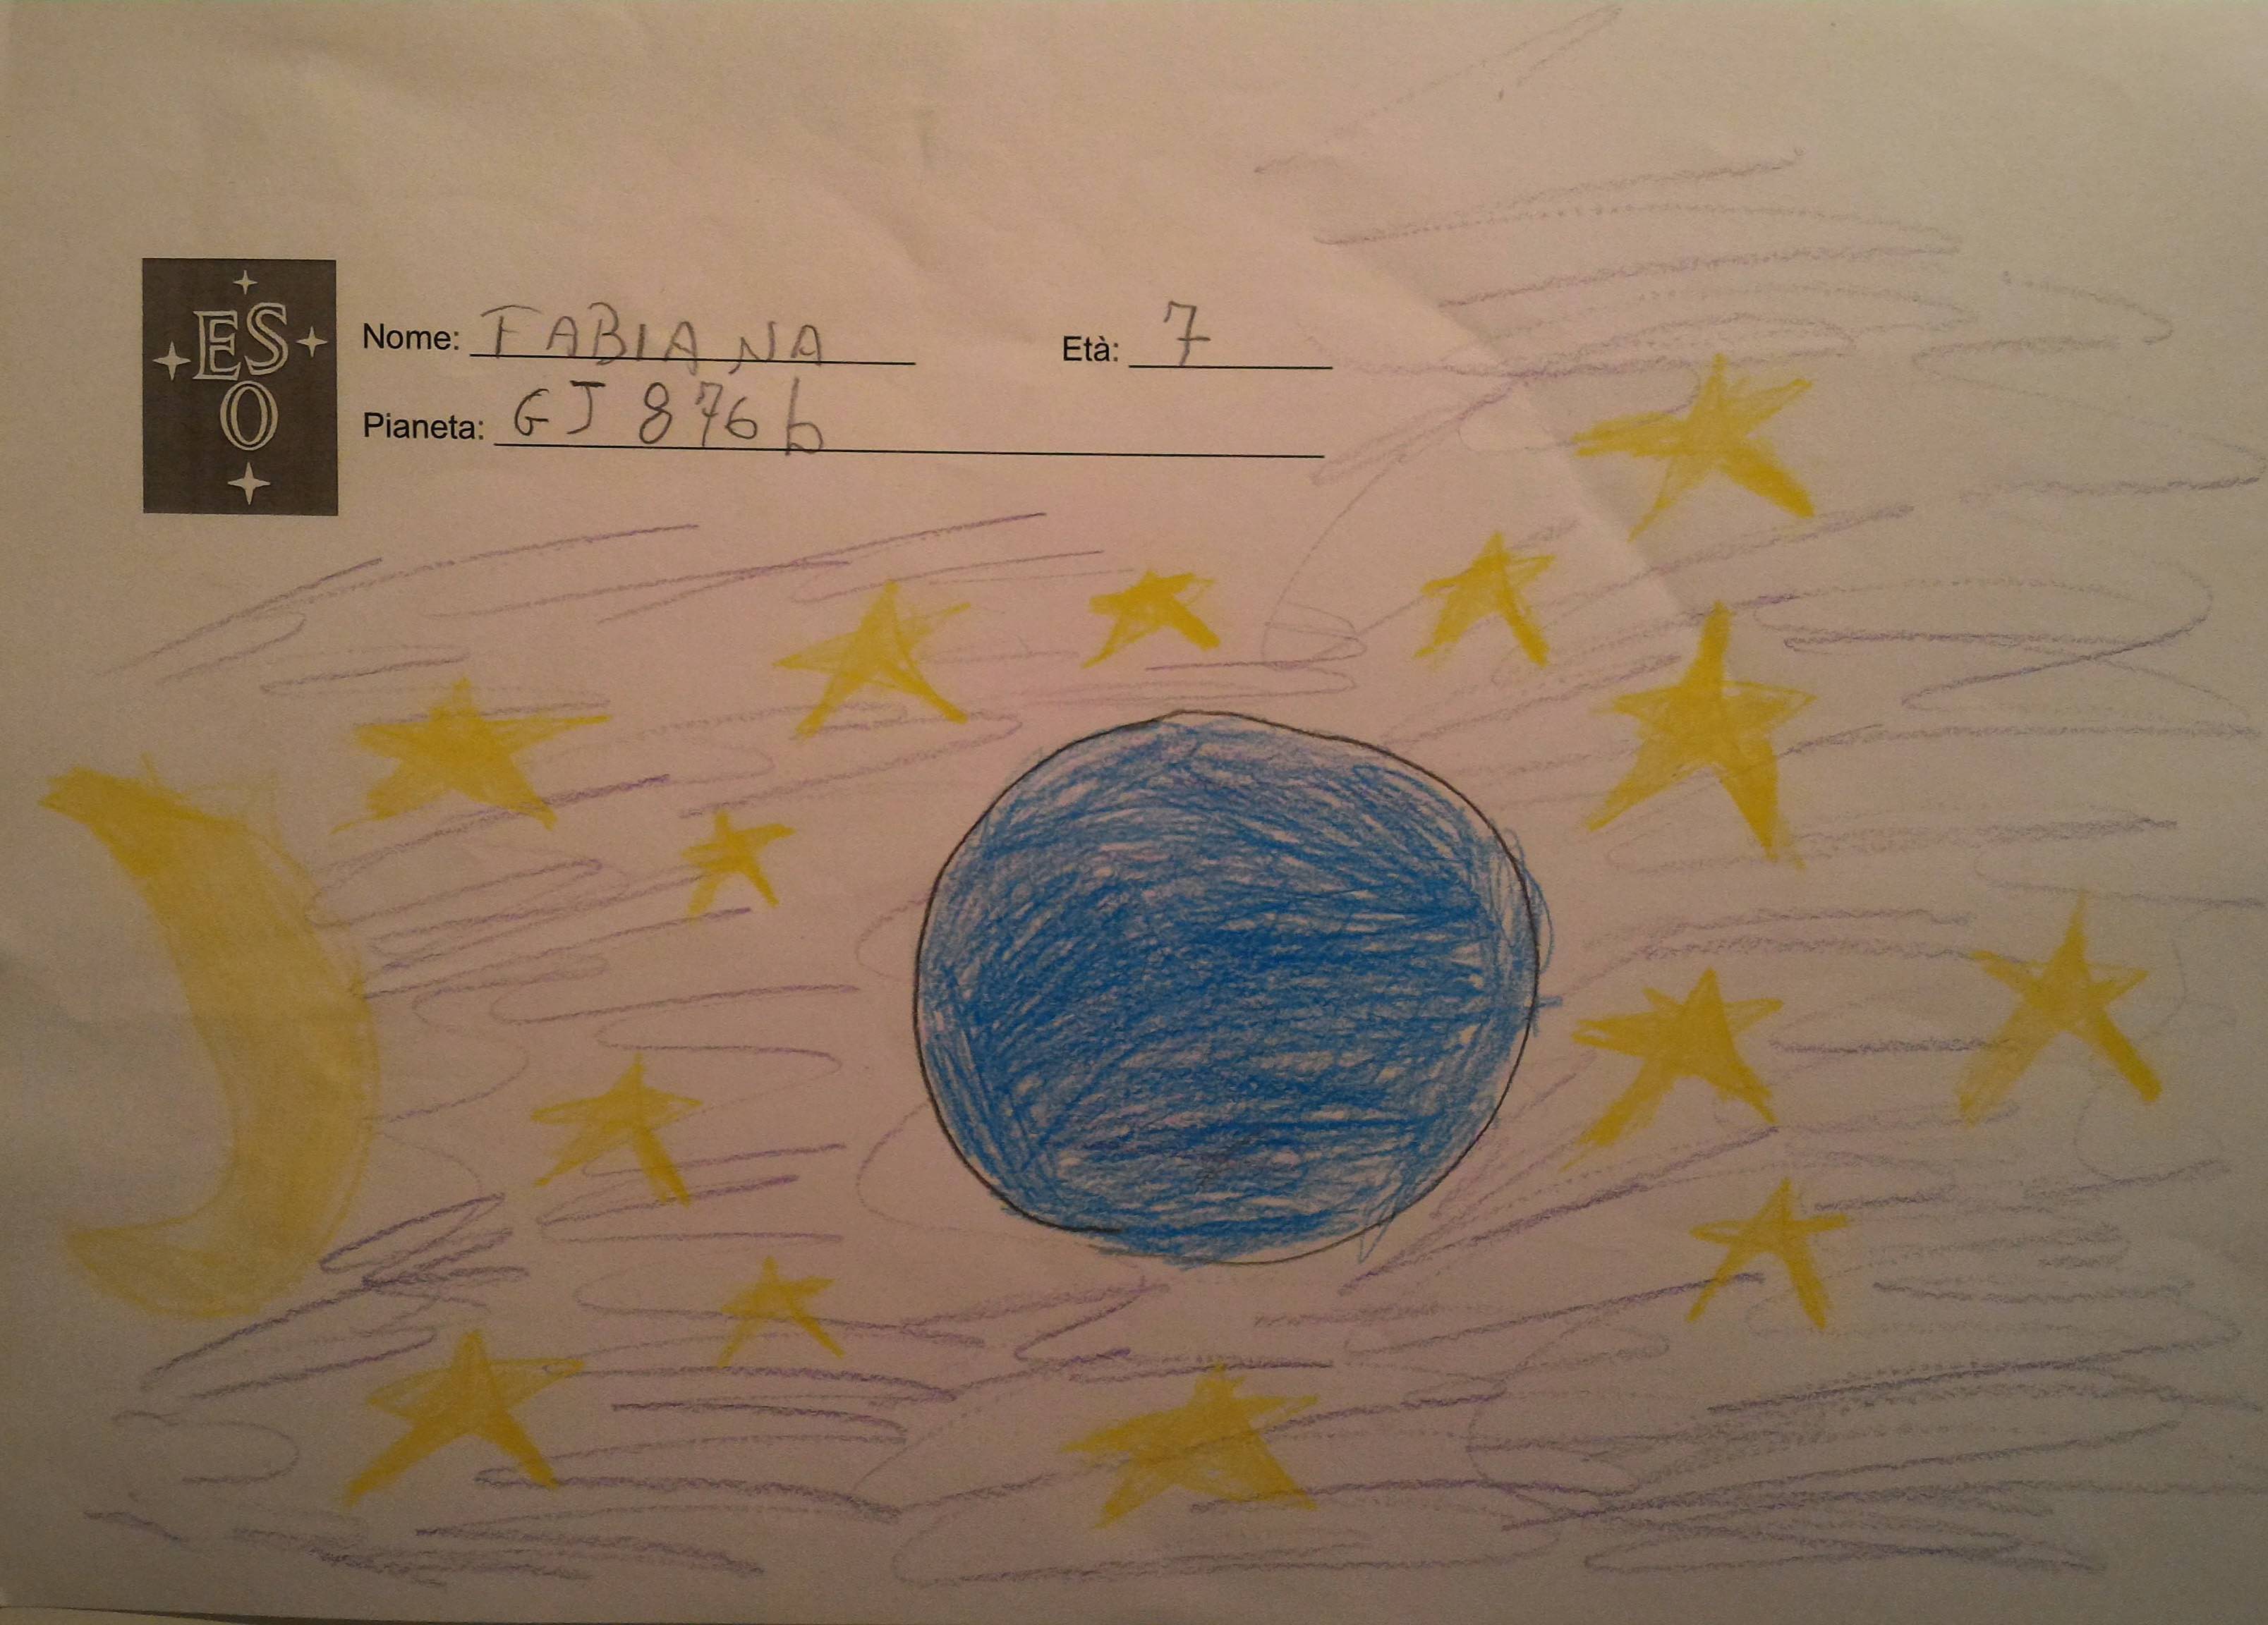 ES
O
Nome: FABIANA Età: 7
Pianeta: GJ 876 b